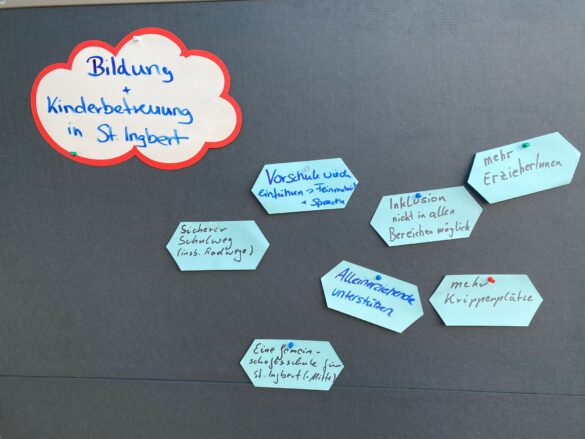 Bildung
+
Kinderbetreuung
in St. Ingbert
mehr
ErzieherInnen
Vorschule wieder
einführen -> Feinmotorik
+ Sprache
Inklusion
nicht in allen
Bereichen möglich
Sicherer
Schulweg
(insb. Radwege)
Alleinerziehende
unterstützen
mehr
Krippenplätze
Eine Gemein-
schaftsschule für
St. Ingbert (-Mitte)